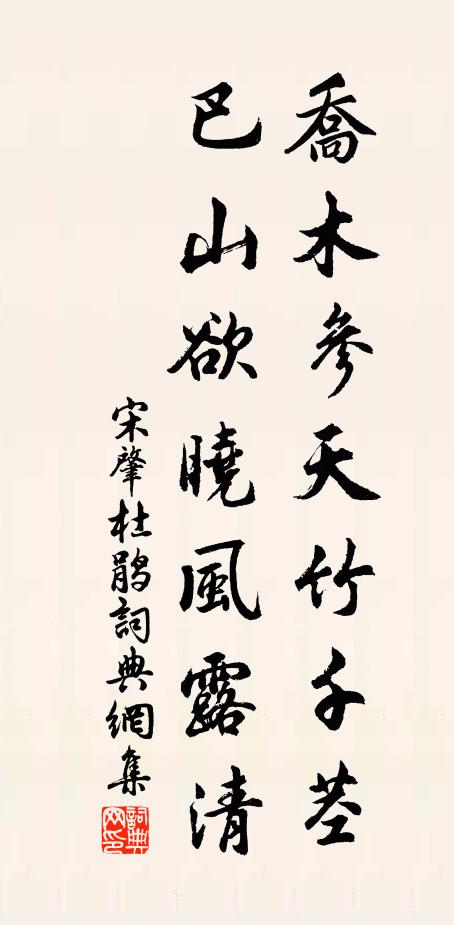 喬木參天竹千莖
巴山欲曉風露清
宋肇杜鵑詞典網集
詞典网印